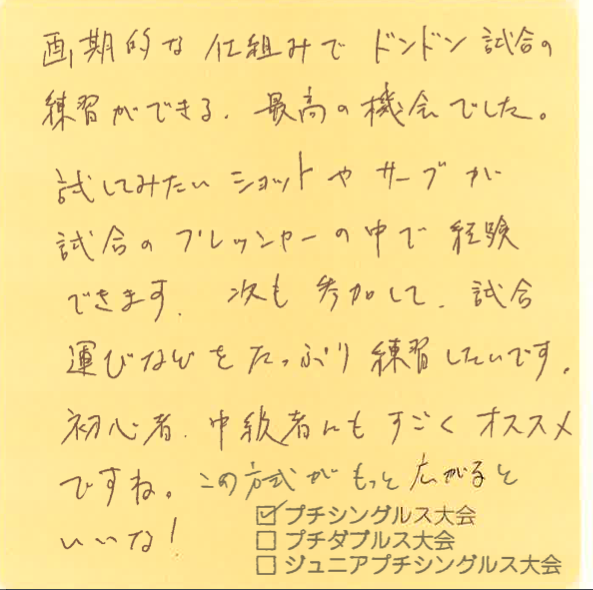 画期的な仕組みでドンドン試合の
練習ができる、最高の機会でした。
試してみたいショットやサーブが
試合のプレッシャーの中で経験
できます。次も参加して、試合
運びなどをたっぷり練習したいです。
初心者、中級者にもすごくオススメ
ですね。この方式がもっと広がると
いいな!
☑ プチシングルス大会
☐ プチダブルス大会
☐ ジュニアプチシングルス大会